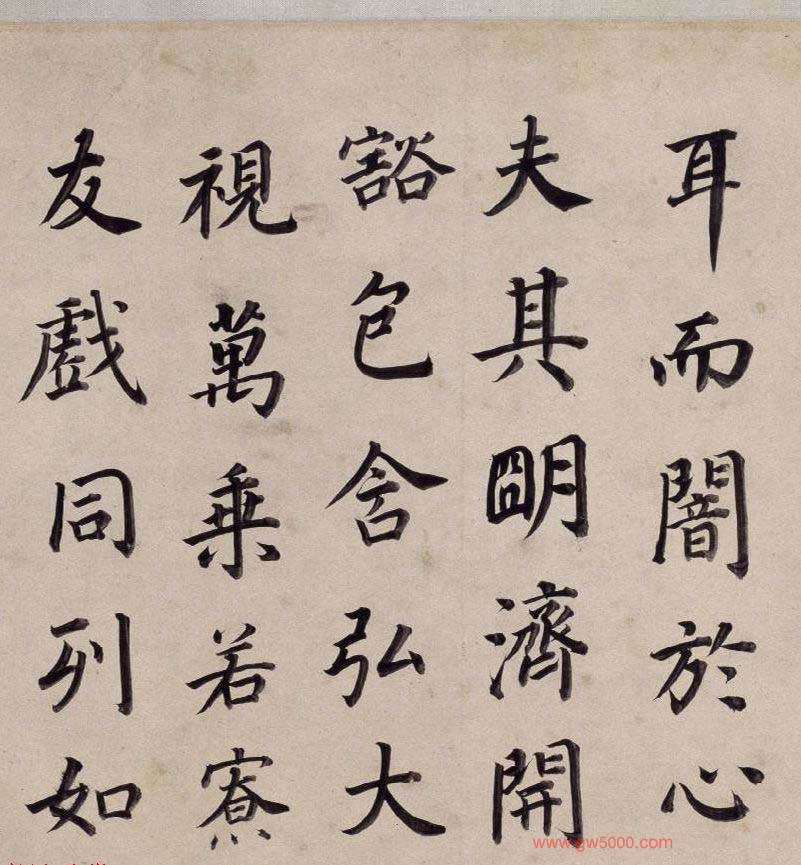 耳而闇於心
夫其明濟開
豁包含弘大
視萬乘若寮
友戲同列如
www.gw5000.com